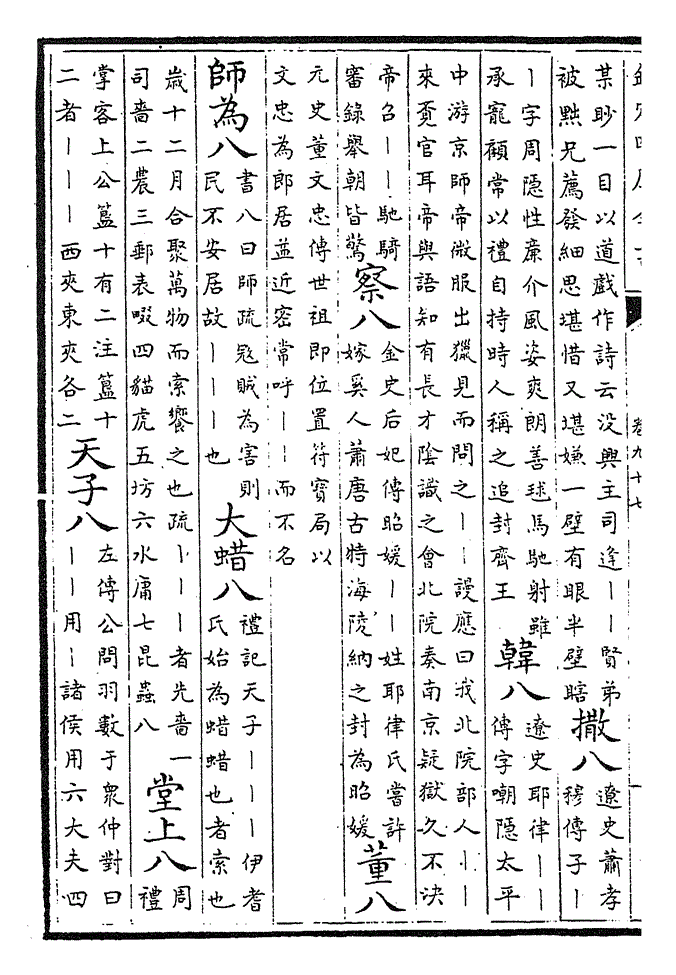 卷九十七
某眇一目以道戲作詩云没興主司逢｜｜賢弟
被黜兄薦發細思堪惜又堪嫌一壁有眼半壁瞎
撒八
遼史蕭孝
穆傳子｜
｜字周隱性亷介風姿爽朗善毬馬馳射雖
承寵顧常以禮自持時人稱之追封齊王
韓八
遼史耶律｜｜
傳字嘲隱太平
中游京師帝微服出獵見而問之｜｜謾應曰我北院部人｜｜
來覓官耳帝與語知有長才陰識之會北院奏南京疑獄久不決
帝召｜｜馳騎
審錄舉朝皆驚
察八
金史后妃傳昭媛｜｜姓耶律氏嘗許
嫁奚人蕭唐古特海陵納之封為昭媛
董八
元史董文忠傳世祖即位置符寶局以
文忠為郎居益近密常呼｜｜而不名
師為八
書八曰師疏冦賊為害則
民不安居故｜｜｜也
大蜡八
禮記天子｜｜｜伊耆
氏始為蜡蜡也者索也
歲十二月合聚萬物而索饗之也疏｜｜｜者先嗇一
司嗇二農三郵表畷四貓虎五坊六水庸七昆蟲八
堂上八
周
禮
掌客上公簋十有二注簋十
二者｜｜｜西夾東夾各二
天子八
左傳公問羽數于衆仲對曰
｜｜用｜諸侯用六大夫四